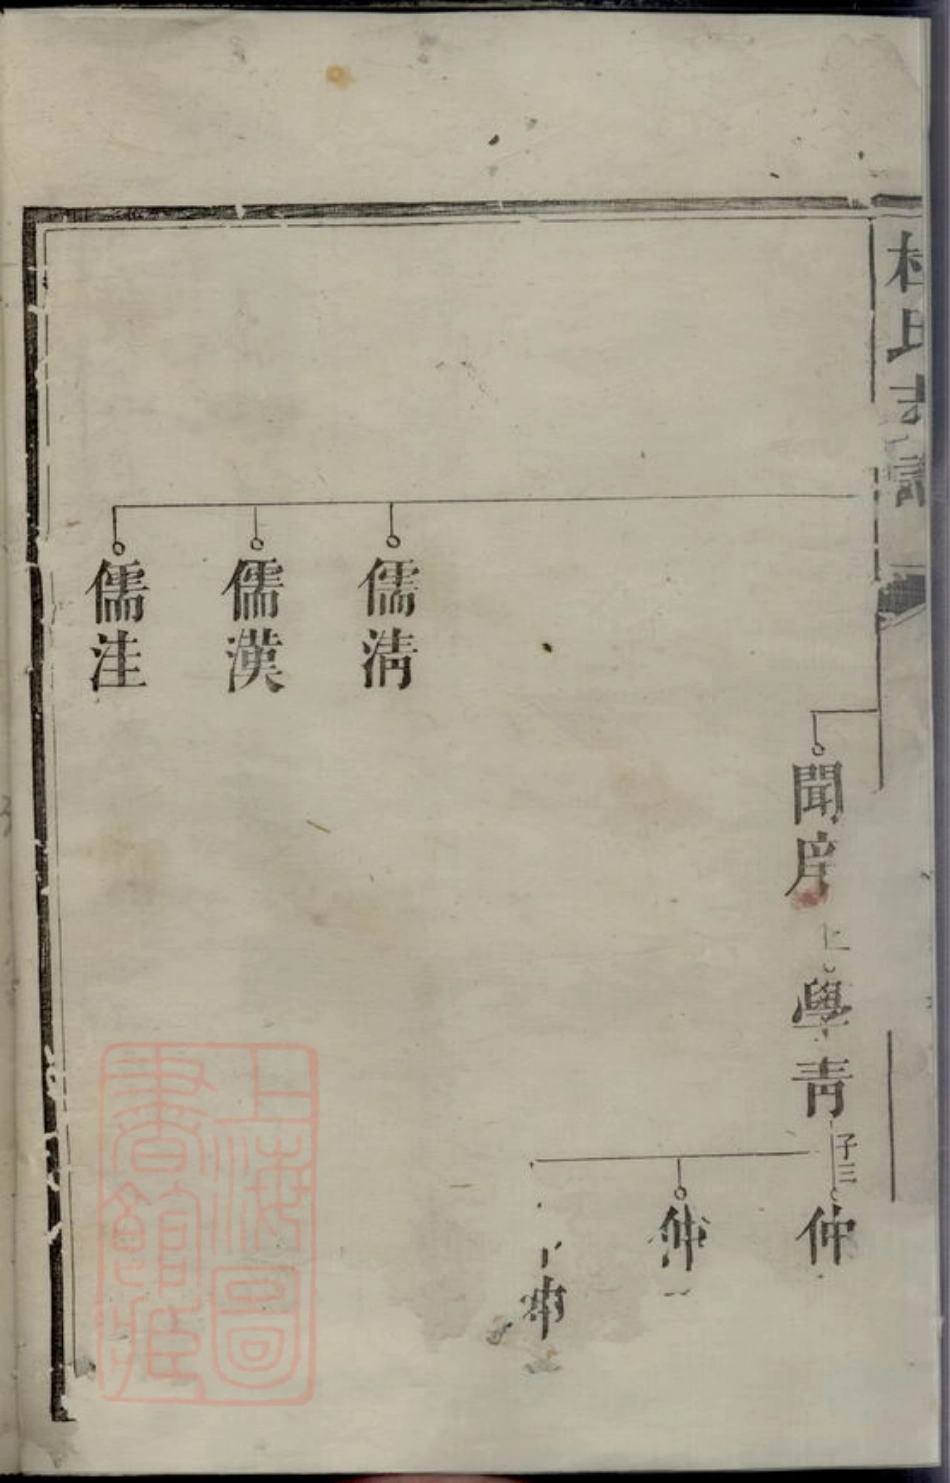 杜氏
聞
學青
子三
仲
仲
儒清
儒漢
儒洼
上海圖
書館藏